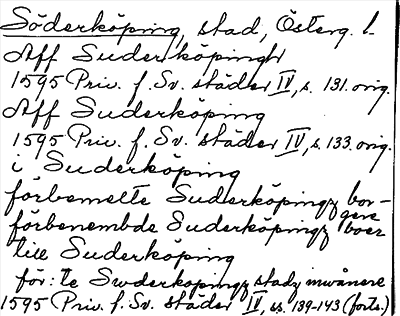 Söderköping, stad, Österg. l.
Aff Suderköpingh
1595 Priv. f. Sv. städer IV, s. 131. orig.
Aff Suderköping
1595 Priv. f. Sv. städer IV, s. 133. orig.
i Suderköping
förbemelte Suderköpingz bor-
gere
förbenembde Suderköpingz boer
till Suderköping
för: te Swderköpingz stadz inwånere
1595 Priv. f. Sv. städer IV, ss. 139-143 (forts.)